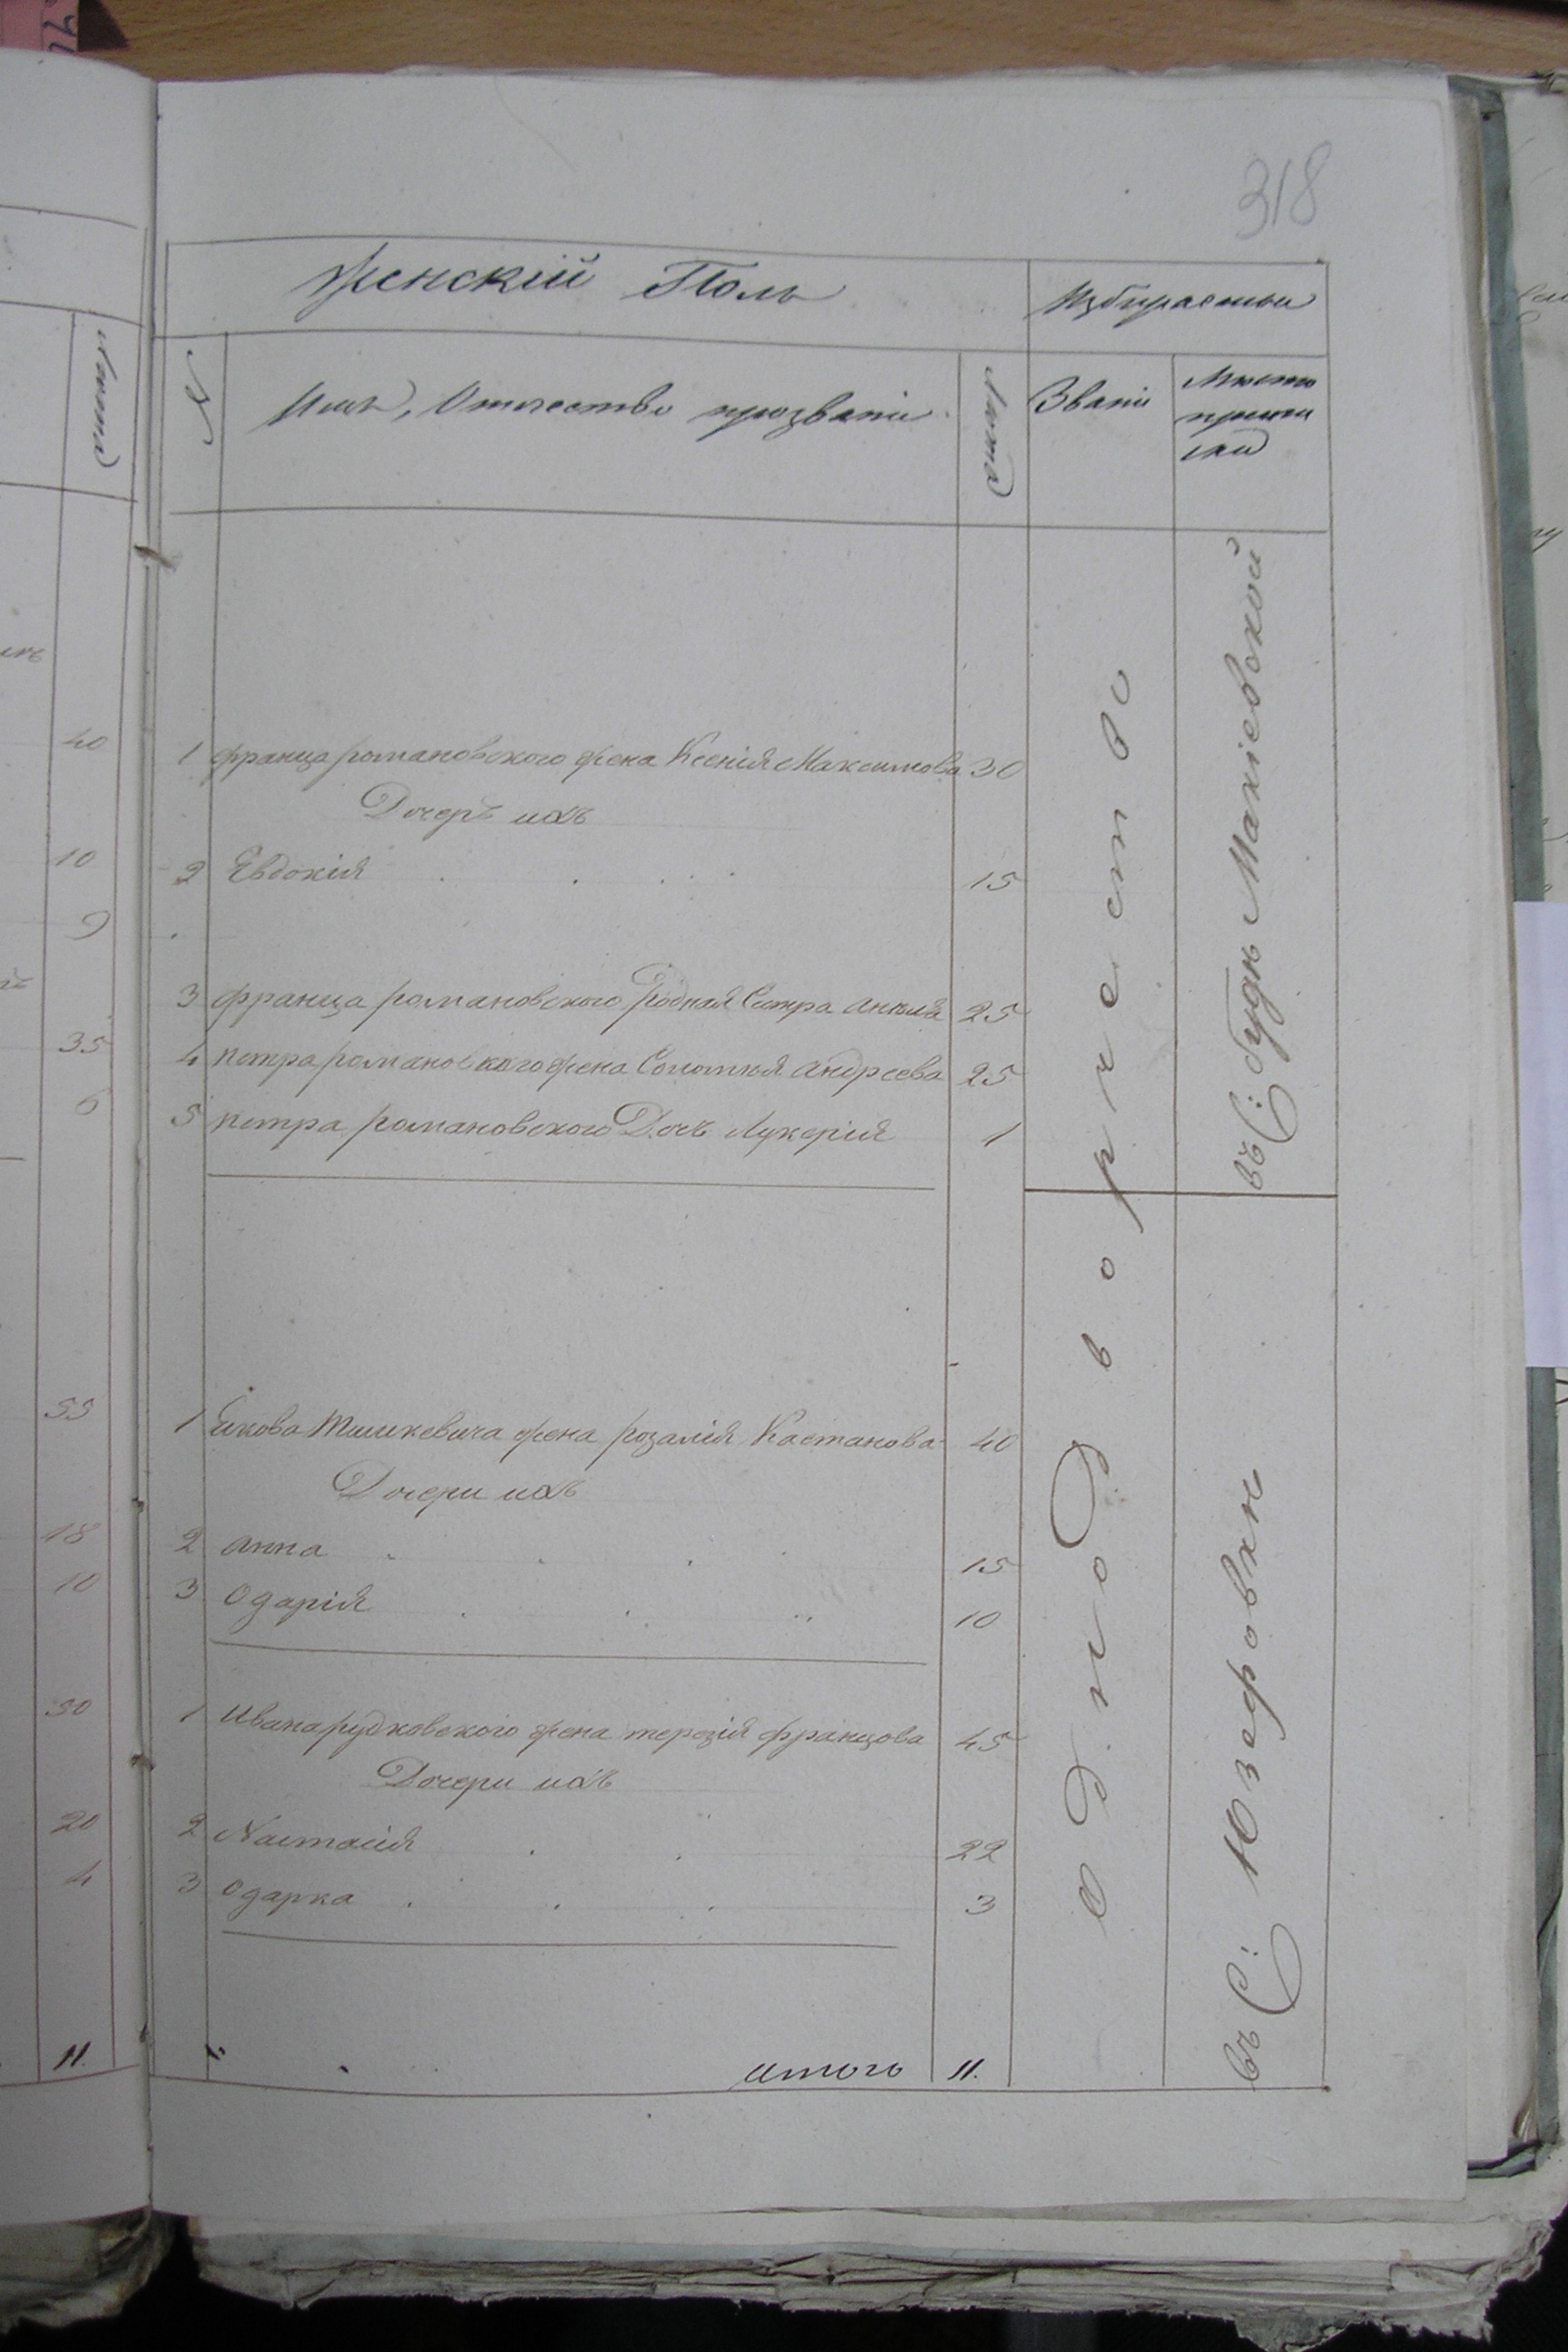 318
Женскій Полъ
Избираемыи
№
Имя, Отчество прозваніе
Лѣта
Званіе
Мѣсто
припи
ски
40
1 франца романовского жена Ксенія Максимова 30
Дочерь ихъ
10
2 Евдокія 15
9
3 франца романовского Родная Сестра Анеля 25
35
4 петра романовского жена Соломья андреева 25
6
5 петра романовского Дочь Лукерія 1
55
1 Якова Тишкевича жена розалія Каетанова 40
Дочери ихъ
18
2 анна 15
10
3 Одарія 10
50
1 Ивана рудковского жена терезія францова 45
Дочери ихъ
20
2 Настасія 22
4
3 Одарка 3
11.
итого 11.
однодворчество
въ С: будѣ Макіевской
въ С: Юзефовки